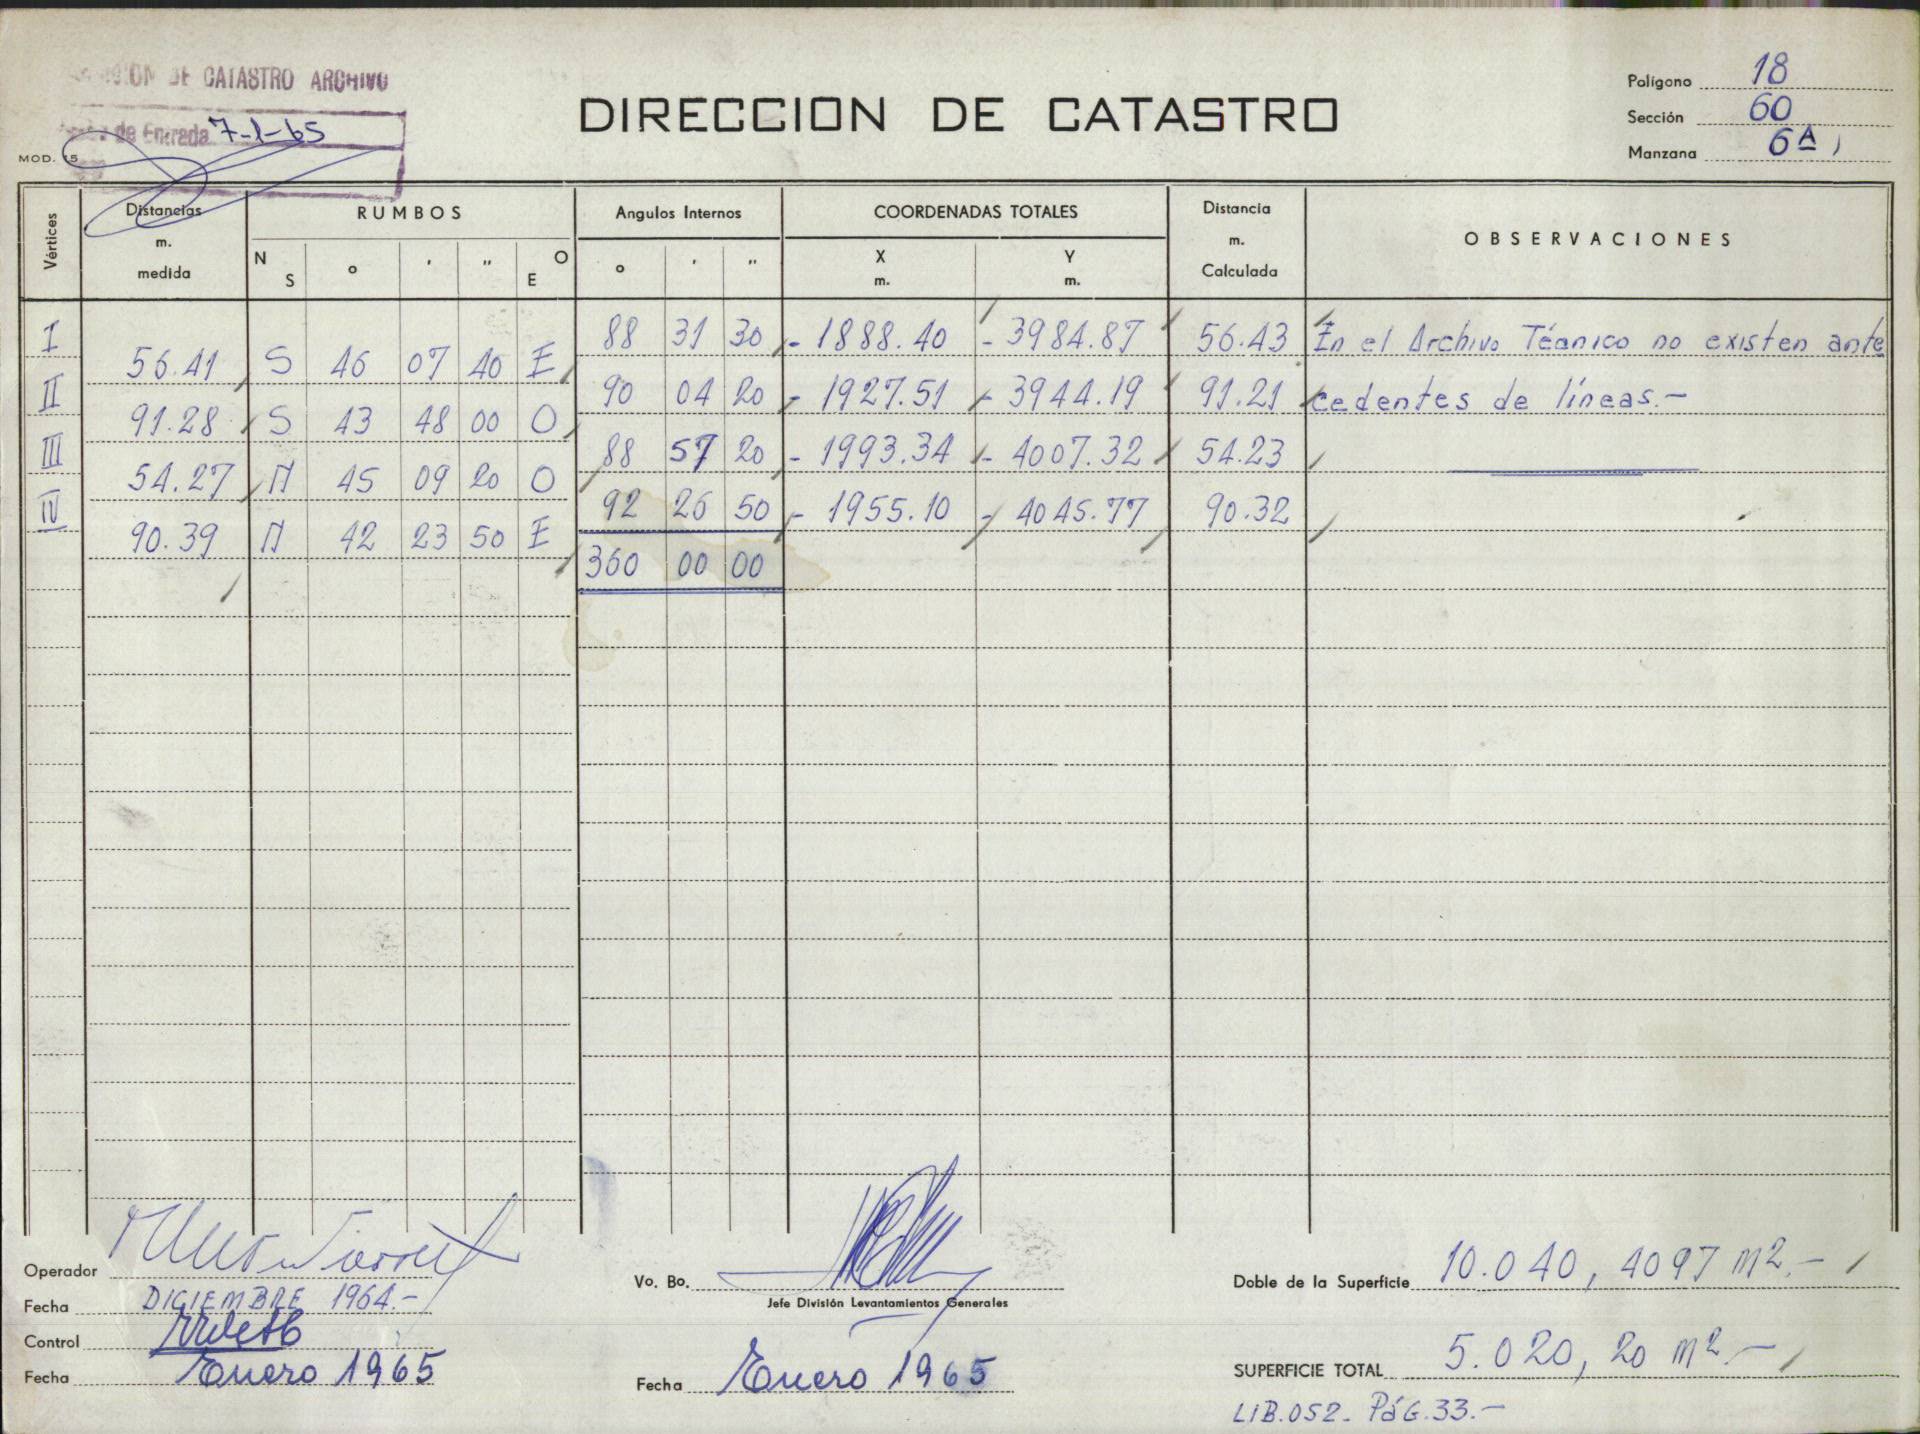 DE CATASTRO ARCHIVO
de Entrada 7-1-65
MOD. 15
DIRECCION DE CATASTRO
Polígono 18
Sección 60
Manzana 6A
Vértices
Distancias m. medida
RUMBOS
N S o ' '' O E
Angulos Internos
o ' ''
COORDENADAS TOTALES
X m. Y m.
Distancia m. Calculada
OBSERVACIONES
I 88 31 30 - 1888.40 - 3984.87 56.43 En el Archivo Técnico no existen ante
56.41 S 46 07 40 E
II 90 04 20 - 1927.51 - 3944.19 91.21 cedentes de líneas.-
91.28 S 43 48 00 O
III 88 57 20 - 1993.34 - 4007.32 54.23
54.27 N 45 09 20 O
IV 92 26 50 - 1955.10 - 4045.77 90.32
90.39 N 42 23 50 E
360 00 00
Operador
Fecha DICIEMBRE 1964.-
Control
Fecha Enero 1965
Vo. Bo.
Jefe División Levantamientos Generales
Fecha Enero 1965
Doble de la Superficie 10.040,4097 m2.-
SUPERFICIE TOTAL 5.020,20 m2.-
LIB.052- PÁG.33.-